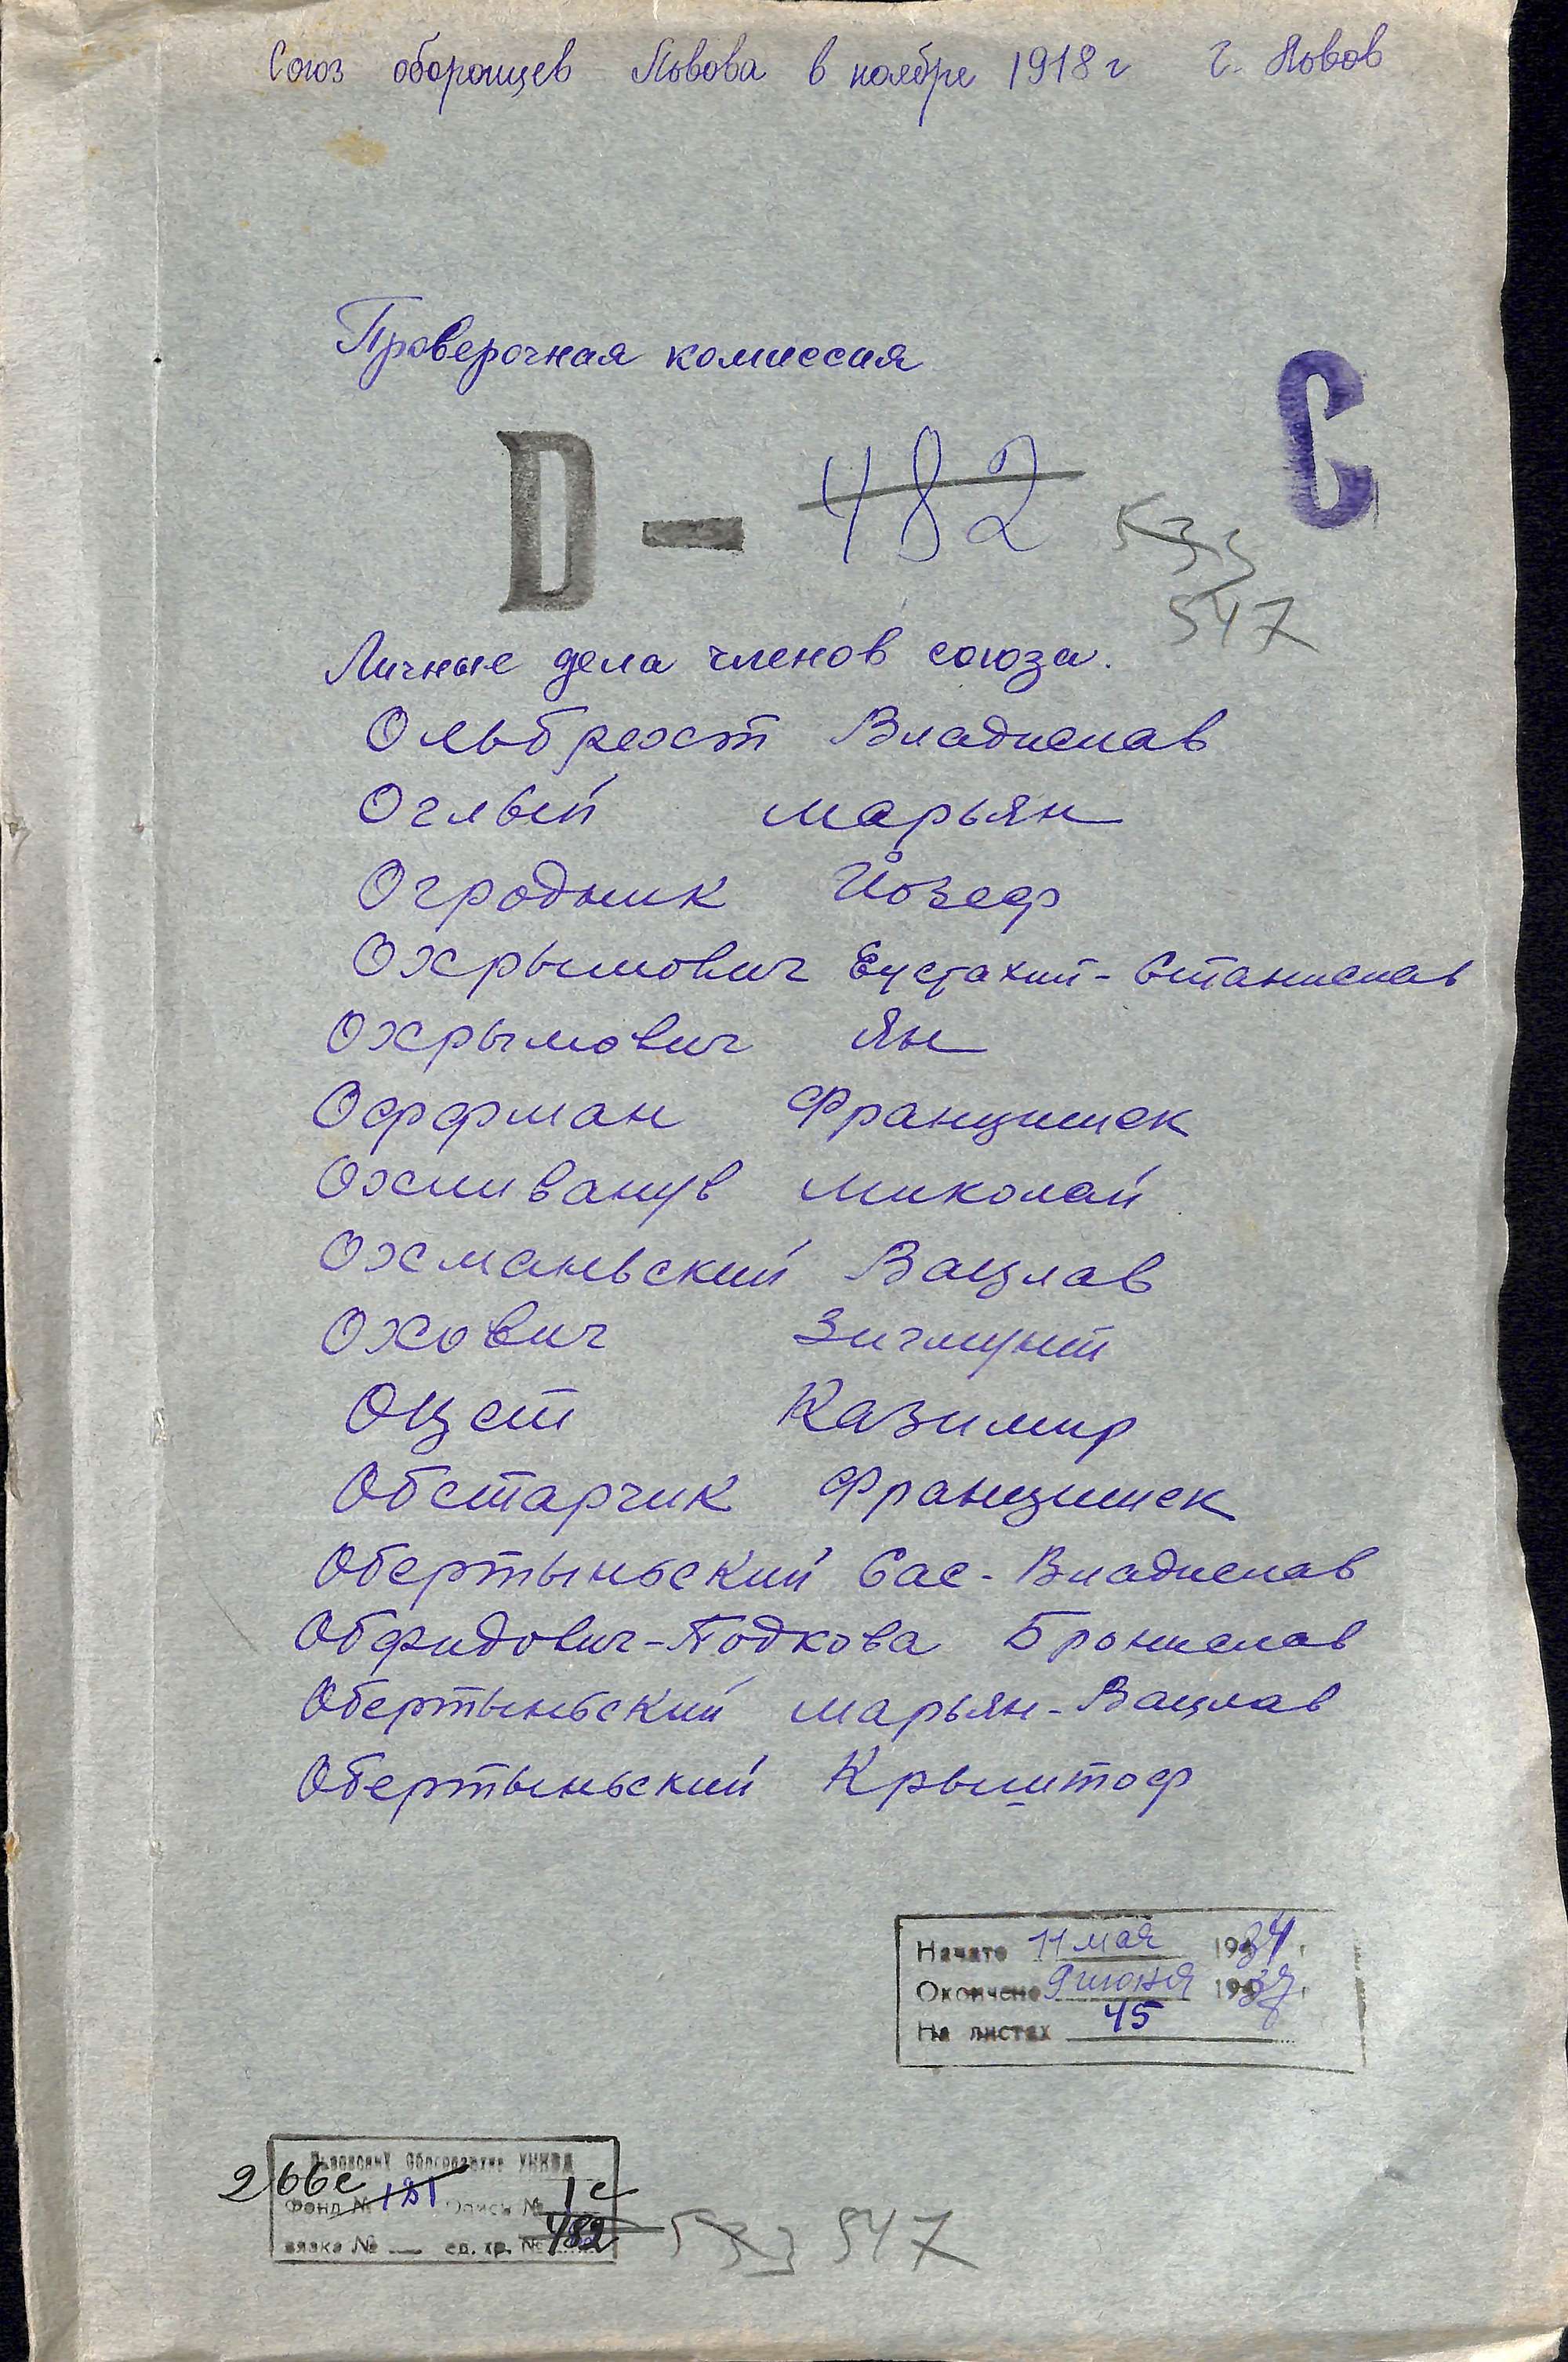 Союз оборонцев Львова в ноябре 1918 г г. Львов
Проверочная комиссия
С
D — 482 533
547
Личные дела членов союза.
Ольбрехт Владислав
Оглый Марьян
Огродник Йозеф
Охрымович Еустахий-Станислав
Охрымович Ян
Оффман Францишек
Охшиванув Миколай
Охманьский Вацлав
Охович Зигмунт
Оцет Казимир
Обстарчик Францишек
Обертыньский Сас-Владислав
Обфидович-Подкова Бронислав
Обертыньский Марьян-Вацлав
Обертыньский Крыштоф
Начато 11 мая 1934 г.
Окончено 9 июня 1937 г.
На листах 45
266с
Фонд № 121 Опись № 1с
вязка № — ед. хр. № 482 533 547